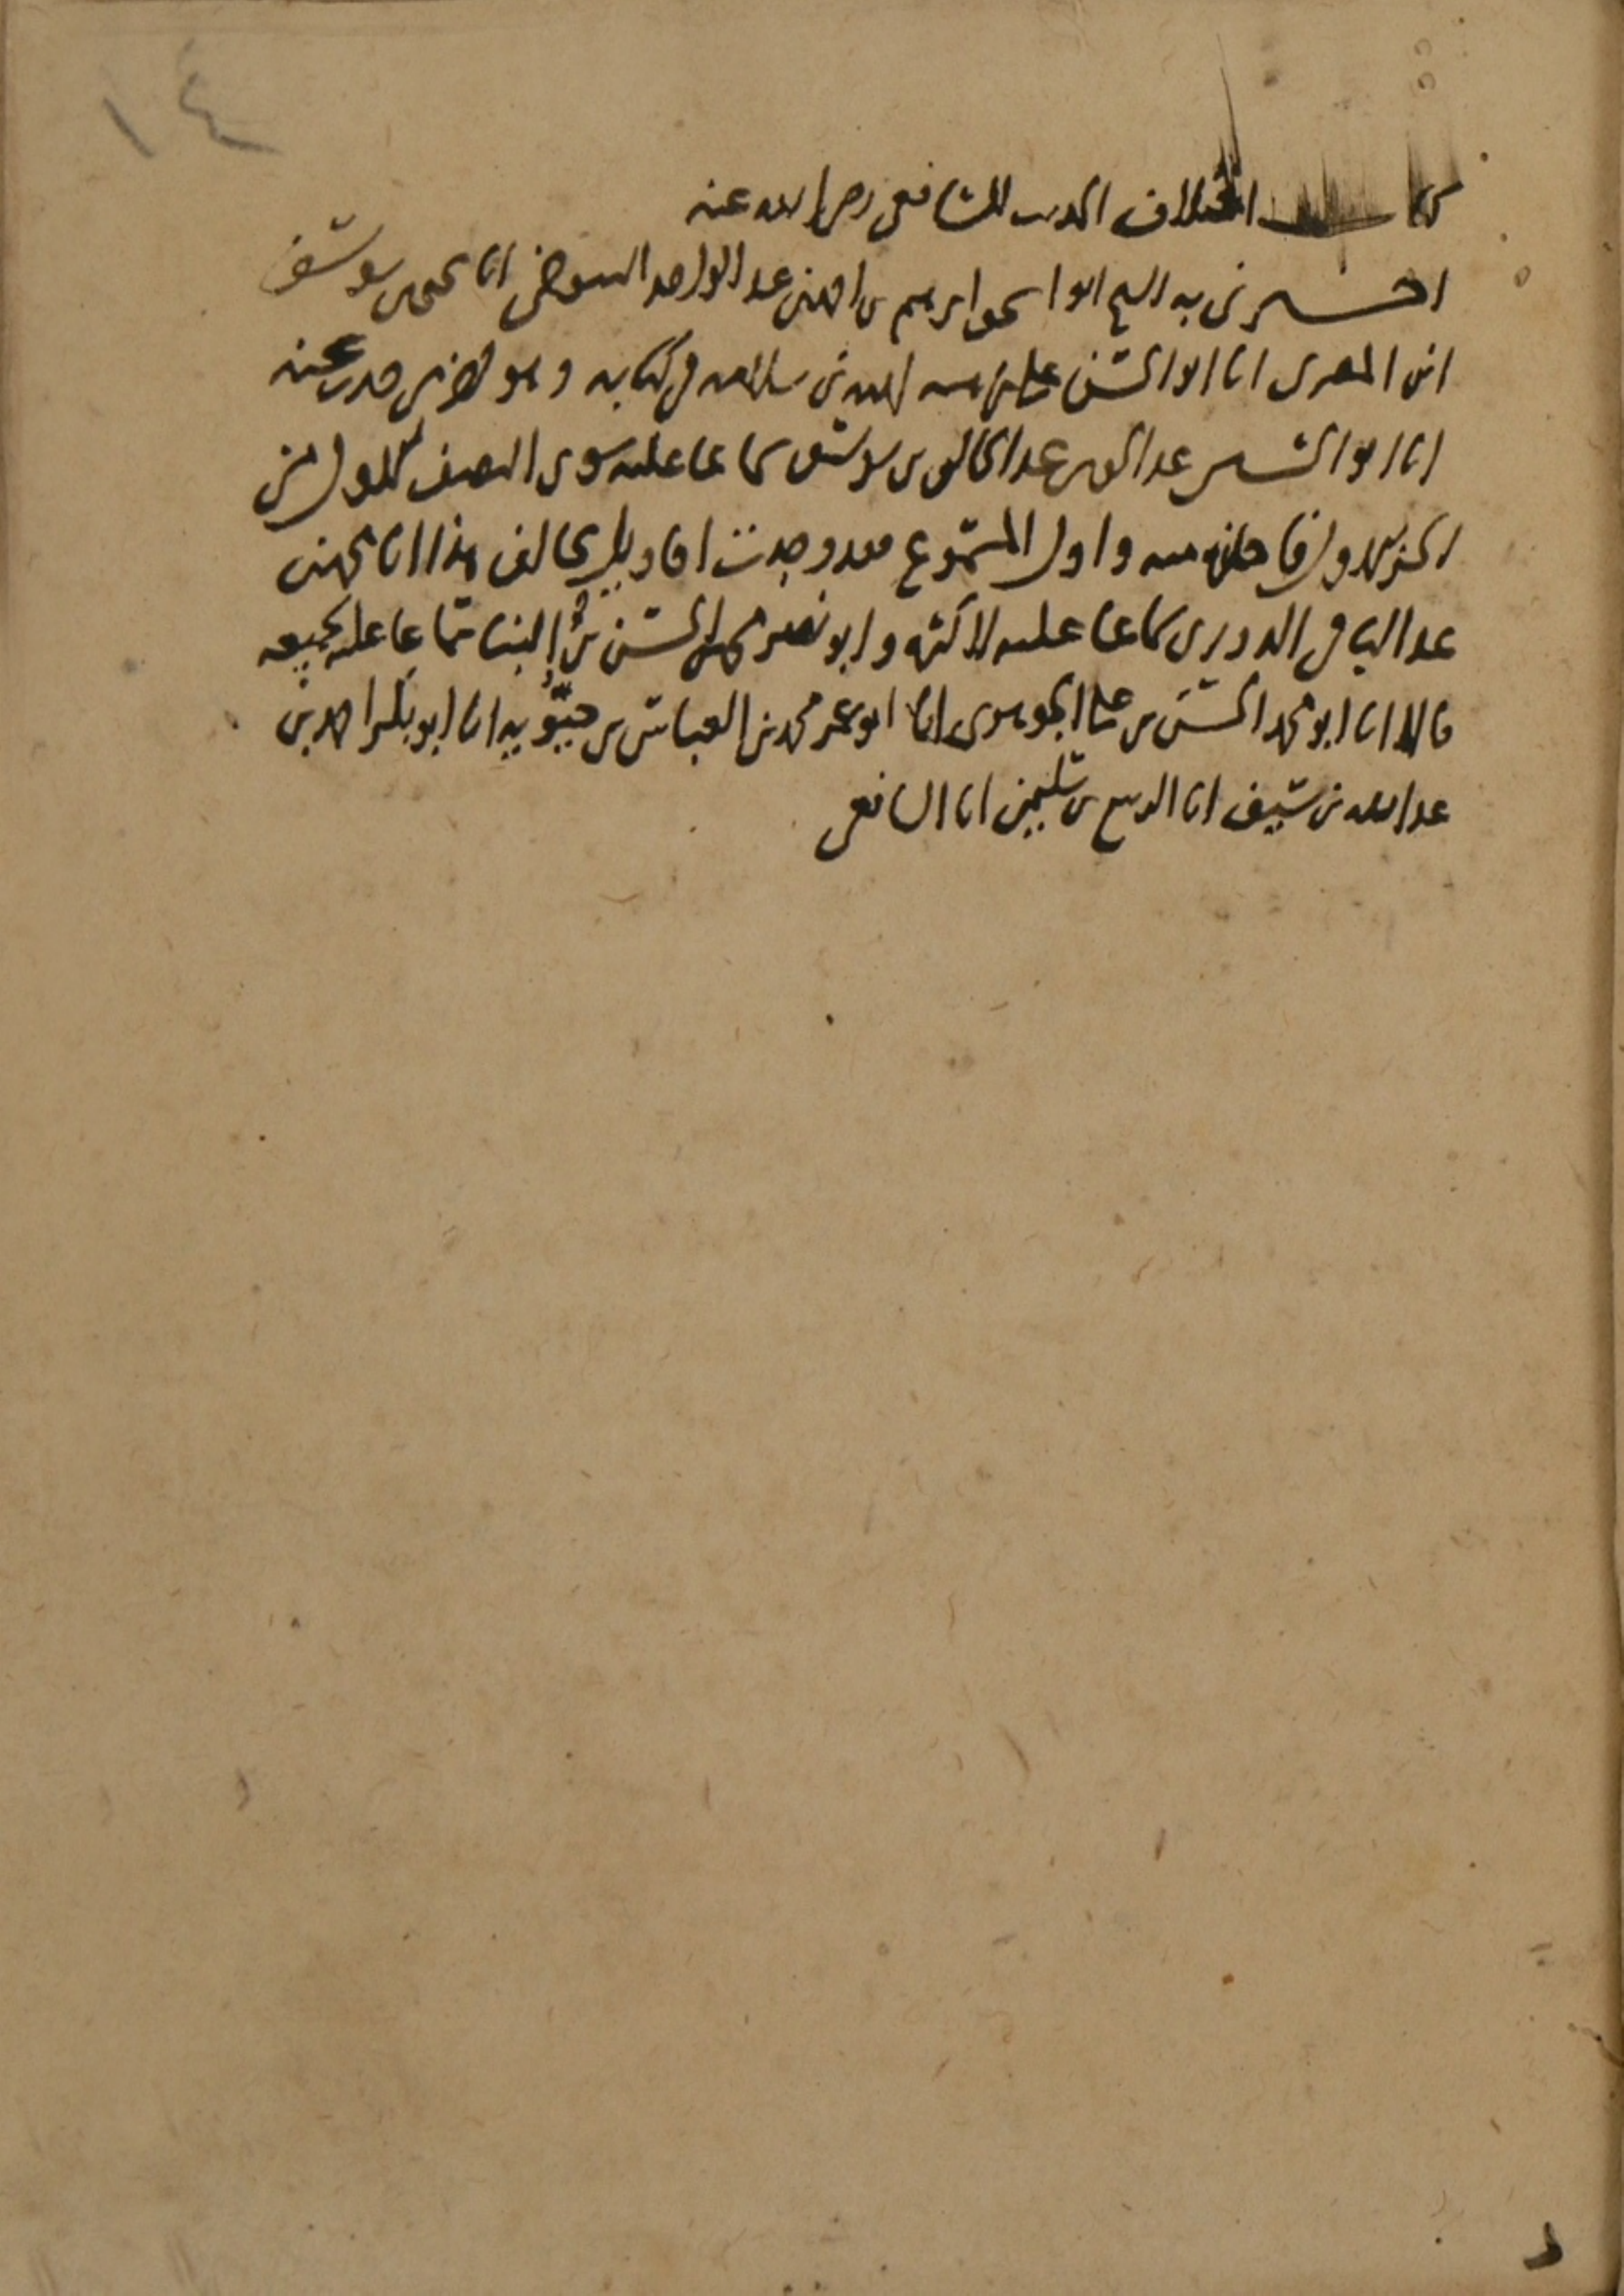 ١٤
كتاب اختلاف الحديث للشافعي رضي الله عنه
اخبرني به الشيخ ابو اسحق ابرهيم بن احمد بن عبد الواحد التنوخي انا يحيى بن يوسف
ابن المصري انا ابو الحسن علي بن هبه الله بن سلامه في كتابه وهو اخر من حدث عنه
انا ابو الحسين عبد الحق بن عبد الخالق بن يوسف سماعا عليه سوى النصف الاول من
الجزء الاول فاجازه منه واول المسموع فقد وجدت اقاويل تخالف هذا انا محمد بن
عبد الباقي الدوري سماعا عليه لاكثره وابو نصر محمد بن الحسن بن البنا سماعا عليه لجميعه
قالا انا ابو محمد الحسن بن علي الجوهري انا ابو عمر محمد بن العباس بن حيويه انا ابو بكر احمد بن
عبد الله بن سيف انا الربيع بن سليمن انا الشافعي